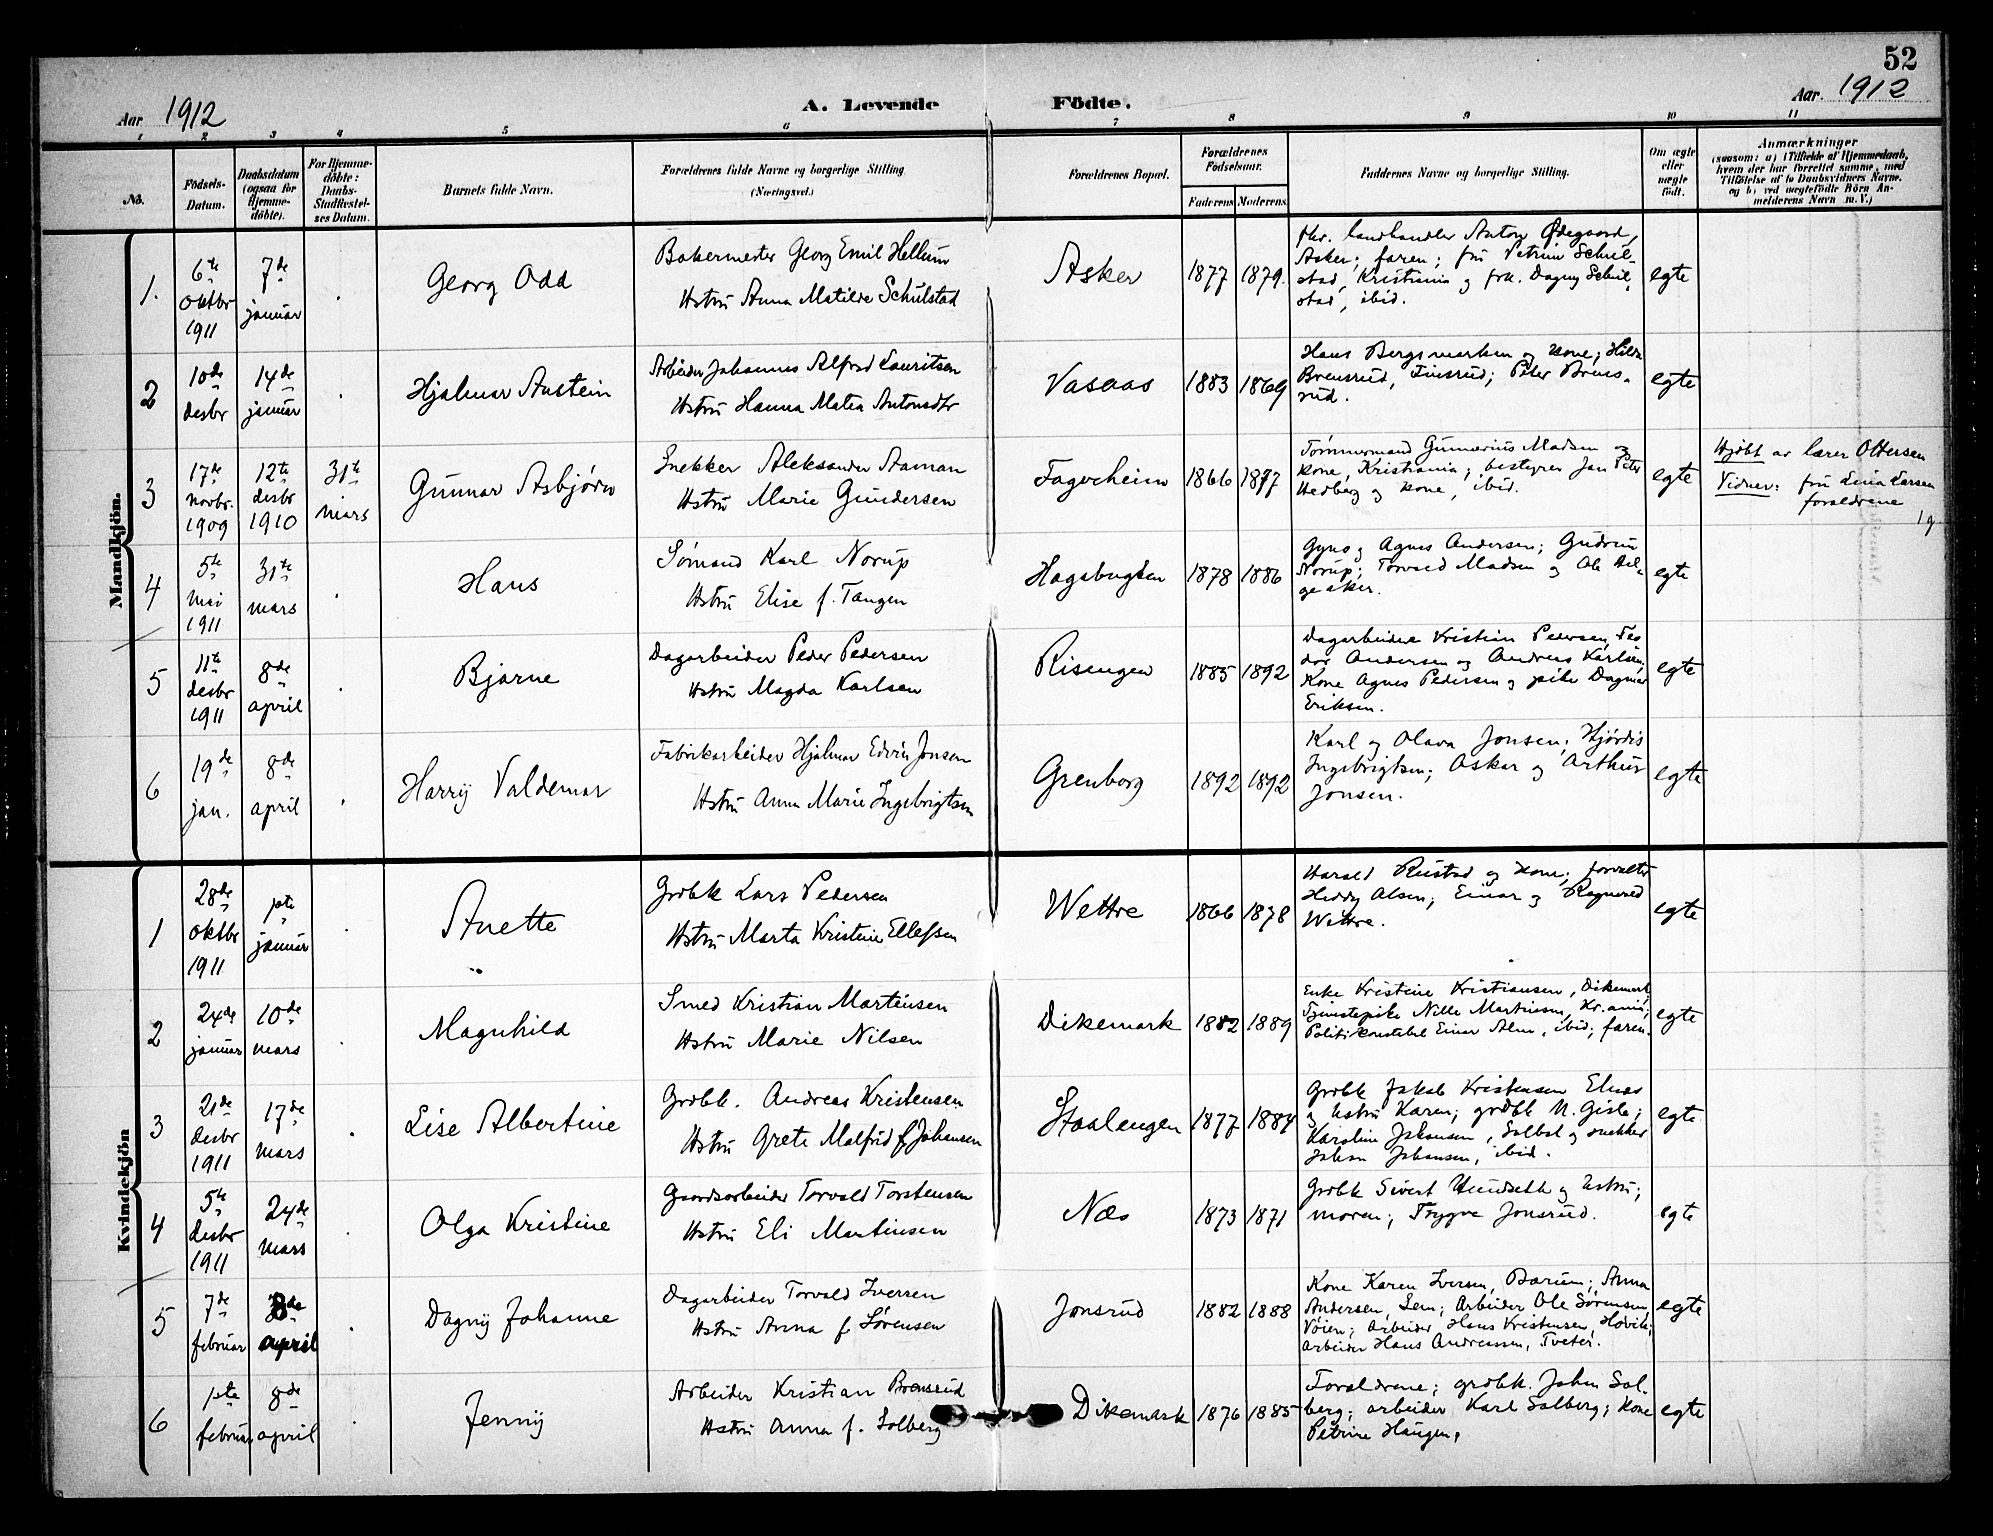 52
Aar 1912
A. Levende
Födte.
Aar. 1912
1 2 3 4 5 6 7 8 9 10 11
No.
Födsels-
Datum.
Daabsdatum
(ogsaa for
Hjemme-
döbte).
For Hjemme-
döbte:
Daabs-
Stadfæstel-
ses Datum.
Barnets fulde Navn.
Forældrenes fulde Navne og borgerlige Stilling
(Næringsvei.)
Forældrenes Bopæl.
Forældrenes
Födselsaar.
Faderens Moderens
Faddernes Navne og borgerlige Stilling.
Om ægte
eller
uægte
födt.
Anmærkninger
(saasom: a) i Tilfælde af Hjemmedaab,
hvem der har forrettet samme, med
Tilföielse af to Daabsvidners Navne,
og b) ved uægtefödte Börn An-
melderens Navn m. V.)
Mandkjön.
1.
6te
oktbr
1911
7de
januar
Georg Odd
Bakermester Georg Emil Hellum
Hstru Anna Matilde Schulstad
Asker
1877 1879.
fhv. landhandler Anton Ødegaard,
Asker; faren; fru Petrine Schul-
stad, Kristiania og frk. Dagny Schul-
stad, ibid.
egte
2
10de
desbr
14de
januar
Hjalmar Austein
Arbeider Johannes Alfred Lauritsen
Hstru Hanna Matea Antonsdtr
Vasaas
1883 1869
Hans Bergsmarken og kone; Hilda
Brensrud, Finsrud; Peter Brens-
rud.
egte
3
17de
novbr.
1909
12te
desbr
1910
31te
mars
Gunnar Asbjørn
Snekker Aleksander Aaman
Hstru Marie Gundersen
Fagerheim
1866 1877
Tømmermand Gunnerius Madsen og
kone, Kristiania; bestyrer Jan Peter
Hedberg og kone, ibid.
egte
Hjdbt av lærer Ottersen
Vidner: fru Lina Larsen
og
forældrene
4
5te
mai
1911
31te
mars
Hans
Sømand Karl Norup
Hstru Elise f. Tangen
Hagabugten
1878 1886
Gyro og Agnes Andersen; Gudrun
Norup; Torvald Madsen og Ole Hel-
geaker.
egte
5
11te
desbr
1911
8de
april
Bjarne
Dagarbeider Peder Pedersen
Hstru Magda Karlsen
Risengen
1885 1892
Dagarbeidere Kristian Pedersen, Teo
dor Andersen og Andreas Karlsen,
Kone Agnes Pedersen og pike Dagmar
Eriksen.
egte
6
19de
jan.
8de
april
Harry Valdemar
Fabrikarbeider Hjalmar Edvin Jonsen
Hstru Anna Marie Ingebrigtsen
Grenborg
1892 1892
Karl og Olava Jonsen; Hjørdis
Ingebrigtsen; Oskar og Arthur
Jonsen.
egte
Kvindekjön
1
28de
oktbr
1911
1ste
januar
Anette
Grdbk Lars Pedersen
Hstru Marta Kristine Ellefsen
Wettre
1866 1878
Harald Rustad og kone; forvalter
Heddy Olsen; Einar og Ragnvald
Wettre.
egte
2
24de
januar
10de
mars
Magnhild
Smed Kristian Martinsen
Hstru Marie Nilsen
Dikemark
1882 1889
Enke Kristine Kristiansen, Dikemark;
Tjenestepike Nille Martinsen, Kr.ania;
Politikonstabel Einar Alm, ibid; faren.
egte
3
21de
desbr
1911
17de
mars
Lise Albertine
Grdbk. Andreas Kristensen
Hstru Grete Malfrid f. Johansen
Staalengen
1877 1884
Grdbk Jakob Kristensen Elnes
og hstru Karen; grdbk N. Gisle;
Karoline Johansen, Solbal og snekker
Johan Johansen, ibid.
egte
4
5te
desbr
1911
24de
mars
Olga Kristine
Gaardsarbeider Torvald Torstensen
Hstru Eli Martinsen
Næs
1873 1871
Grdbk Sivert Hundseth og hstru;
moren; Trygve Jonsrud.
egte
5
7de
februar
8de
april
Dagny Johanne
Dagarbeider Torvald Iversen
Hstru Anna f. Sørensen
Jonsrud
1882 1888
Kone Karen Iversen, Bærum; Anna
Andersen, Sem; Arbeider Ole Sørensen,
Vøien; arbeider Hans Kristensen, Høvik;
arbeider Hans Andreassen, Tveter.
egte
6
1ste
februar
8de
april
Jenny
Arbeider Kristian Brensrud
Hstru Anna f. Solberg
Dikemark
1876 1885
Forældrene; grdbk. Johan Sol-
berg; arbeider Karl Solberg; kone
Petrine Haugen.
egte